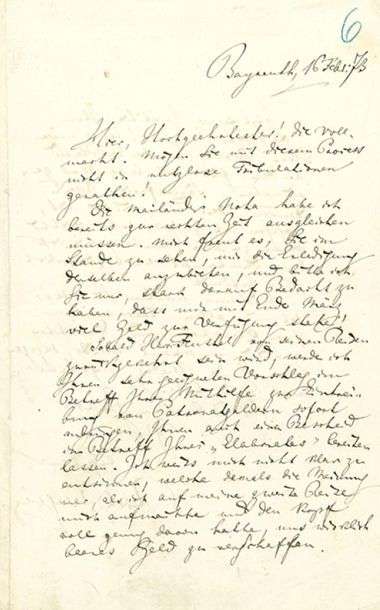 6
Bayreuth, 16 Febr. 73
Hier, Hochgeehrtester! die Voll-
macht. Mögen Sie mit diesem Process
nicht in nutzlose Tribulationen
gerathen!
Die Mailänder Nota habe ich
bereits zur rechten Zeit ausgleichen
müssen. Mich freut es, Sie im
Stande zu sehen, mir die Erledigung
derselben anzubieten, und bitte ich
Sie nur, stark darauf Bedacht zu
haben, dass mir mit Ende März
viel Geld zur Verfügung stehe!
Sobald von seinen Reisen
zurückgekehrt sein wird, werde ich
Ihren sehr geehrten Vorschlag im
Betreff Ihrer Mithilfe zur Eintrei-
bung von Patronatgeldern sofort
Ihnen auch einen Bescheid
im Betreff Ihres „Elaborates"
lassen. Ich weiss mich nicht klar zu
entsinnen, welche damals die Meinung
war, als ich auf meine zweite Reise
mich aufmachte und den Kopf
voll genug davon hatte, uns wirklich
baares Geld zu verschaffen.